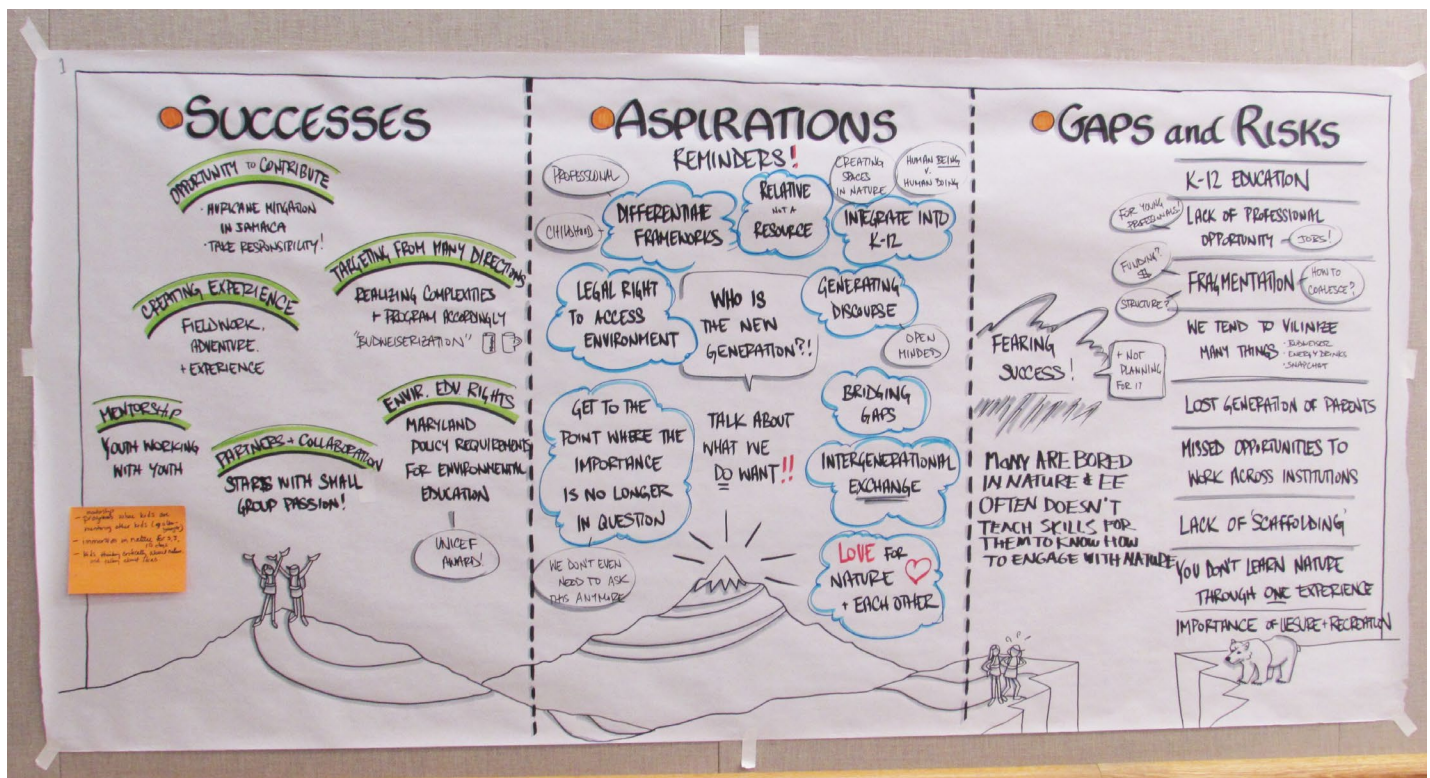 1
SUCCESSES
OPPORTUNITY TO CONTRIBUTE
· HURICANE MITIGATION
IN JAMAICA
· TAKE RESPONSIBILITY!
TARGETING FROM MANY DIRECTIONS
REALIZING COMPLEXITIES
+ PROGRAM ACCORDINGLY
"BUDWEISERIZATION"
CREATING EXPERIENCE
FIELDWORK,
ADVENTURE,
+ EXPERIENCE
MENTORSHIP
YOUTH WORKING
WITH YOUTH
PARTNERS + COLLABORATION
STARTS WITH SMALL
GROUP PASSION!
ENVIR. EDU RIGHTS
MARYLAND
POLICY REQUIREMENTS
FOR ENVIRONMENTAL
EDUCATION
UNICEF
AWARD!
mentorship
- programs where kids are
mentoring other kids
- immersion in nature for
- kids thinking critically about nature
ASPIRATIONS
REMINDERS!
PROFESSIONAL
CHILDHOOD
DIFFERENTIATE
FRAMEWORKS
RELATIVE
NOT A
RESOURCE
CREATING
SPACES
IN NATURE
HUMAN BEING
V.
HUMAN DOING
INTEGRATE INTO
K-12
LEGAL RIGHT
TO ACCESS
ENVIRONMENT
WHO IS
THE NEW
GENERATION?!
GENERATING
DISCOURSE
OPEN
MINDED
GET TO THE
POINT WHERE THE
IMPORTANCE
IS NO LONGER
IN QUESTION
WE DON'T EVEN
NEED TO ASK
THIS ANYMORE
TALK ABOUT
WHAT WE
DO WANT!!
BRIDGING
GAPS
INTERGENERATIONAL
EXCHANGE
LOVE FOR
NATURE
+ EACH OTHER
GAPS and RISKS
K-12 EDUCATION
FOR YOUNG
PROFESSIONALS!
LACK OF PROFESSIONAL
OPPORTUNITY
JOBS!
FUNDING?
$
STRUCTURE?
FRAGMENTATION
HOW TO
COALESCE?
WE TEND TO VILINIZE
MANY THINGS
· BUDWEISER
· ENERGY DRINKS
· SNAPCHAT
FEARING
SUCCESS!
+ NOT
PLANNING
FOR IT
LOST GENERATION OF PARENTS
MISSED OPPORTUNITIES TO
WORK ACROSS INSTITUTIONS
MANY ARE BORED
IN NATURE & EE
OFTEN DOESN'T
TEACH SKILLS FOR
THEM TO KNOW HOW
TO ENGAGE WITH NATURE
LACK OF 'SCAFFOLDING'
YOU DON'T LEARN NATURE
THROUGH ONE EXPERIENCE
IMPORTANCE OF LIESURE + RECREATION